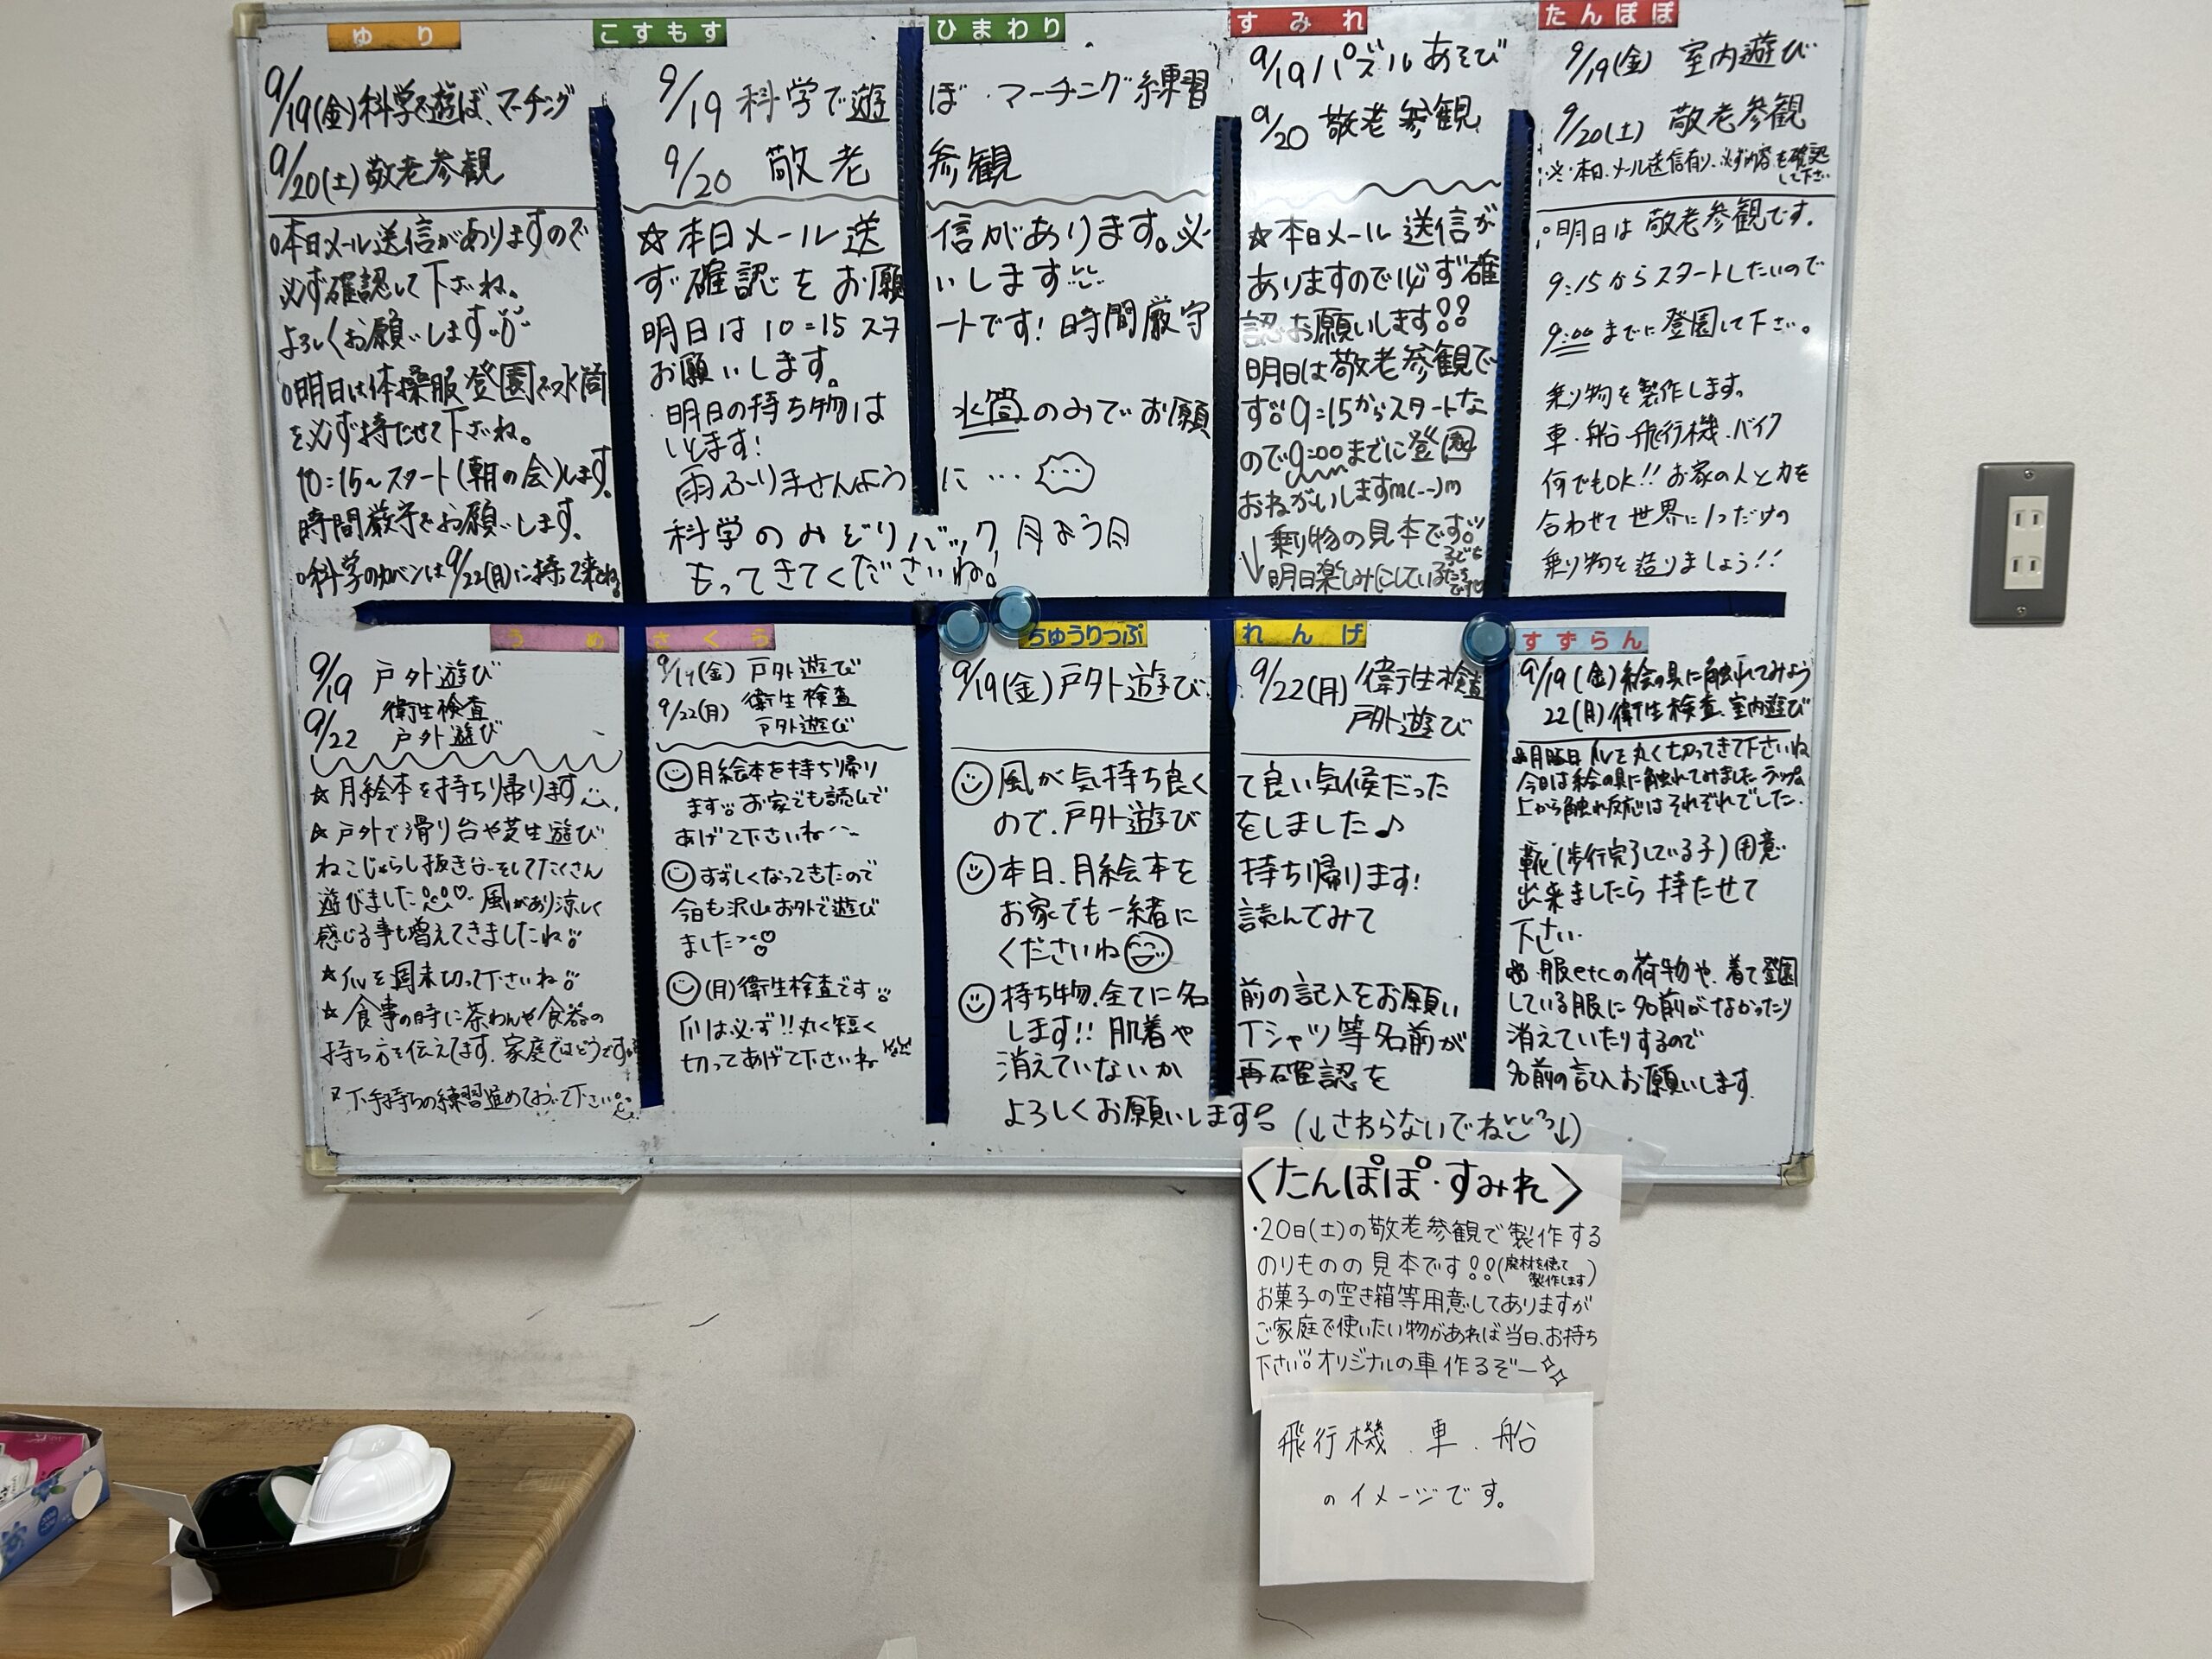 ゆり
9/19(金)科学で遊ぼ、マーチング
9/20(土)敬老参観
○本日メール送信がありますので
必ず確認して下さいね。
よろしくお願いします
○明日は体操服登園で水筒
を必ず持たせて下さいね。
10:15〜スタート(朝の会)します。
時間厳守でお願いします。
○科学のカバンは9/22(月)に持って来てね。
こすもす ひまわり
9/19 科学で遊ぼ・マーチング練習
9/20 敬老参観
☆本日メール送信があります。必
ず確認をお願いします
明日は10:15スタートです!時間厳守
お願いします。
・明日の持ち物は水筒のみでお願
いします!
雨ふりませんように…
科学のみどりバック月よう日
もってきてくださいね!
すみれ
9/19 パズルあそび
9/20 敬老参観
☆本日メール送信が
ありますので必ず確
認お願いします!!
明日は敬老参観で
す。9:15からスタートな
ので9:00までに登園
おねがいしますm(--)m
↓乗り物の見本です。
明日楽しみにしている子どもたちです
たんぽぽ
9/19(金) 室内遊び
9/20(土) 敬老参観
※本日、メール送信有り、必ず内容も確認して下さい
○明日は敬老参観です。
9:15からスタートしたいので
9:00までに登園して下さい。
乗り物を製作します。
車・船・飛行機・バイク
何でもOK!!お家の人と力を
合わせて世界に1つだけの
乗り物を造りましょう!!
うめ
9/19 戸外遊び
衛生検査
9/22 戸外遊び
☆月絵本を持ち帰ります
☆戸外で滑り台や芝生遊び
ねこじゃらし抜きなどをしてたくさん
遊びました♡風があり涼しく
感じる事も増えてきましたね
☆爪を週末切って下さいね
☆食事の時に茶わんや食器の
持ち方を伝えてます。家庭ではどうですか
下手持ちの練習進めておいて下さい
さくら
9/19(金) 戸外遊び
9/22(月) 衛生検査
戸外遊び
月絵本を持ち帰り
ます。お家でも読んで
あげて下さいね
すずしくなってきたので
今日も沢山お外で遊び
ました♡
(月)衛生検査です
爪は必ず!!丸く短く
切ってあげて下さいね
ちゅうりっぷ れんげ
9/19(金)戸外遊び 9/22(月) 衛生検査
戸外遊び
風が気持ち良くて良い気候だった
ので、戸外遊びをしました♪
本日、月絵本を持ち帰ります!
お家でも一緒に読んでみて
くださいね
持ち物、全てに名前の記入をお願い
します!!肌着やTシャツ等名前が
消えていないか再確認を
よろしくお願いします
(↓さわらないでね↓)
すずらん
9/19(金)絵の具に触れてみよう
22(月)衛生検査、室内遊び
月曜日爪を丸く切ってきて下さいね
今日は絵の具に触れてみました。ラップの
上から触れ反応はそれぞれでした。
靴(歩行完了している子)用意
出来ましたら持たせて
下さい。
服etcの荷物や、着て登園
している服に名前がなかったり
消えていたりするので
名前の記入お願いします。
〈たんぽぽ・すみれ〉
・20日(土)の敬老参観で製作する
のりものの見本です!!(廃材を使って製作します)
お菓子の空き箱等用意してありますが
ご家庭で使いたい物があれば当日、お持ち
下さい。オリジナルの車作るぞー
飛行機.車.船
のイメージです。